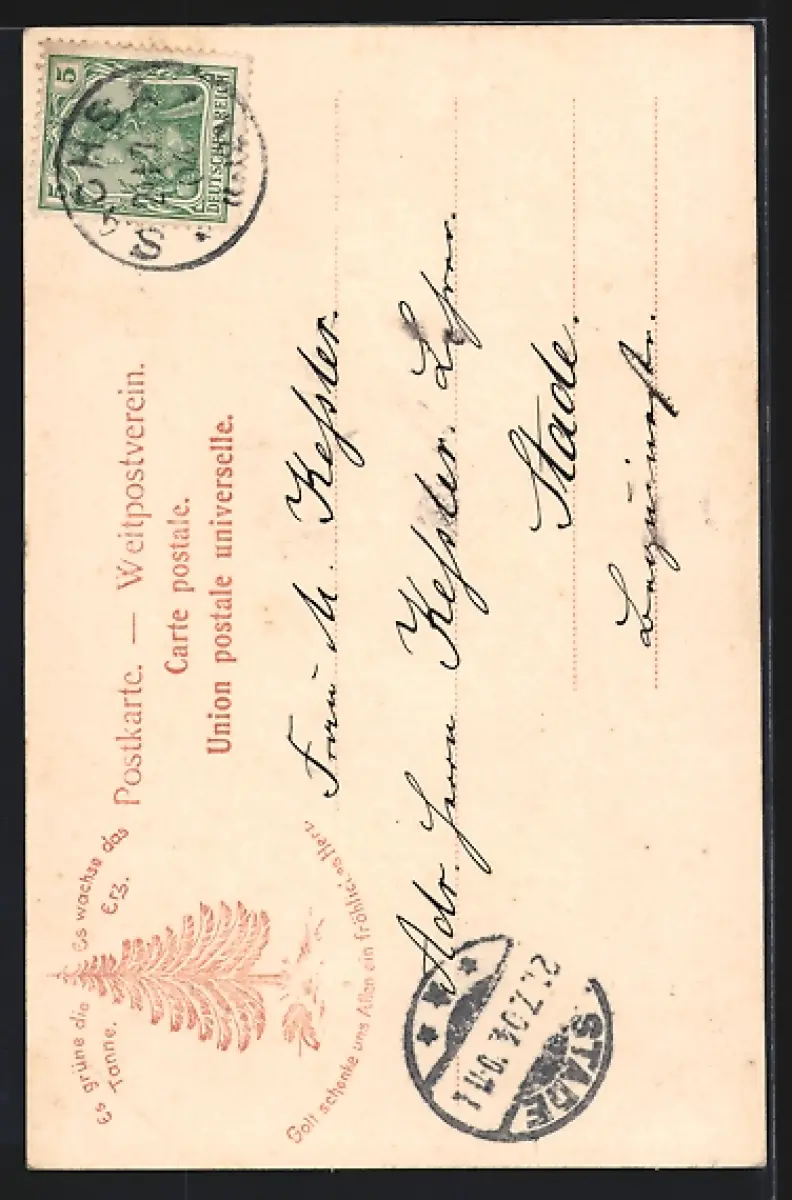 5
5
DEUTSCHES REICH
SACHSA
Postkarte. — Weltpostverein.
Carte postale.
Union postale universelle.
Es grüne die
Tanne,
Es wachse das
Erz.
Gott schenke uns Allen ein fröhliches Herz.
Frau M. Keſsler.
Adr. Herrn Keſsler. Lehrer.
Stade.
STADE
21.7.04.